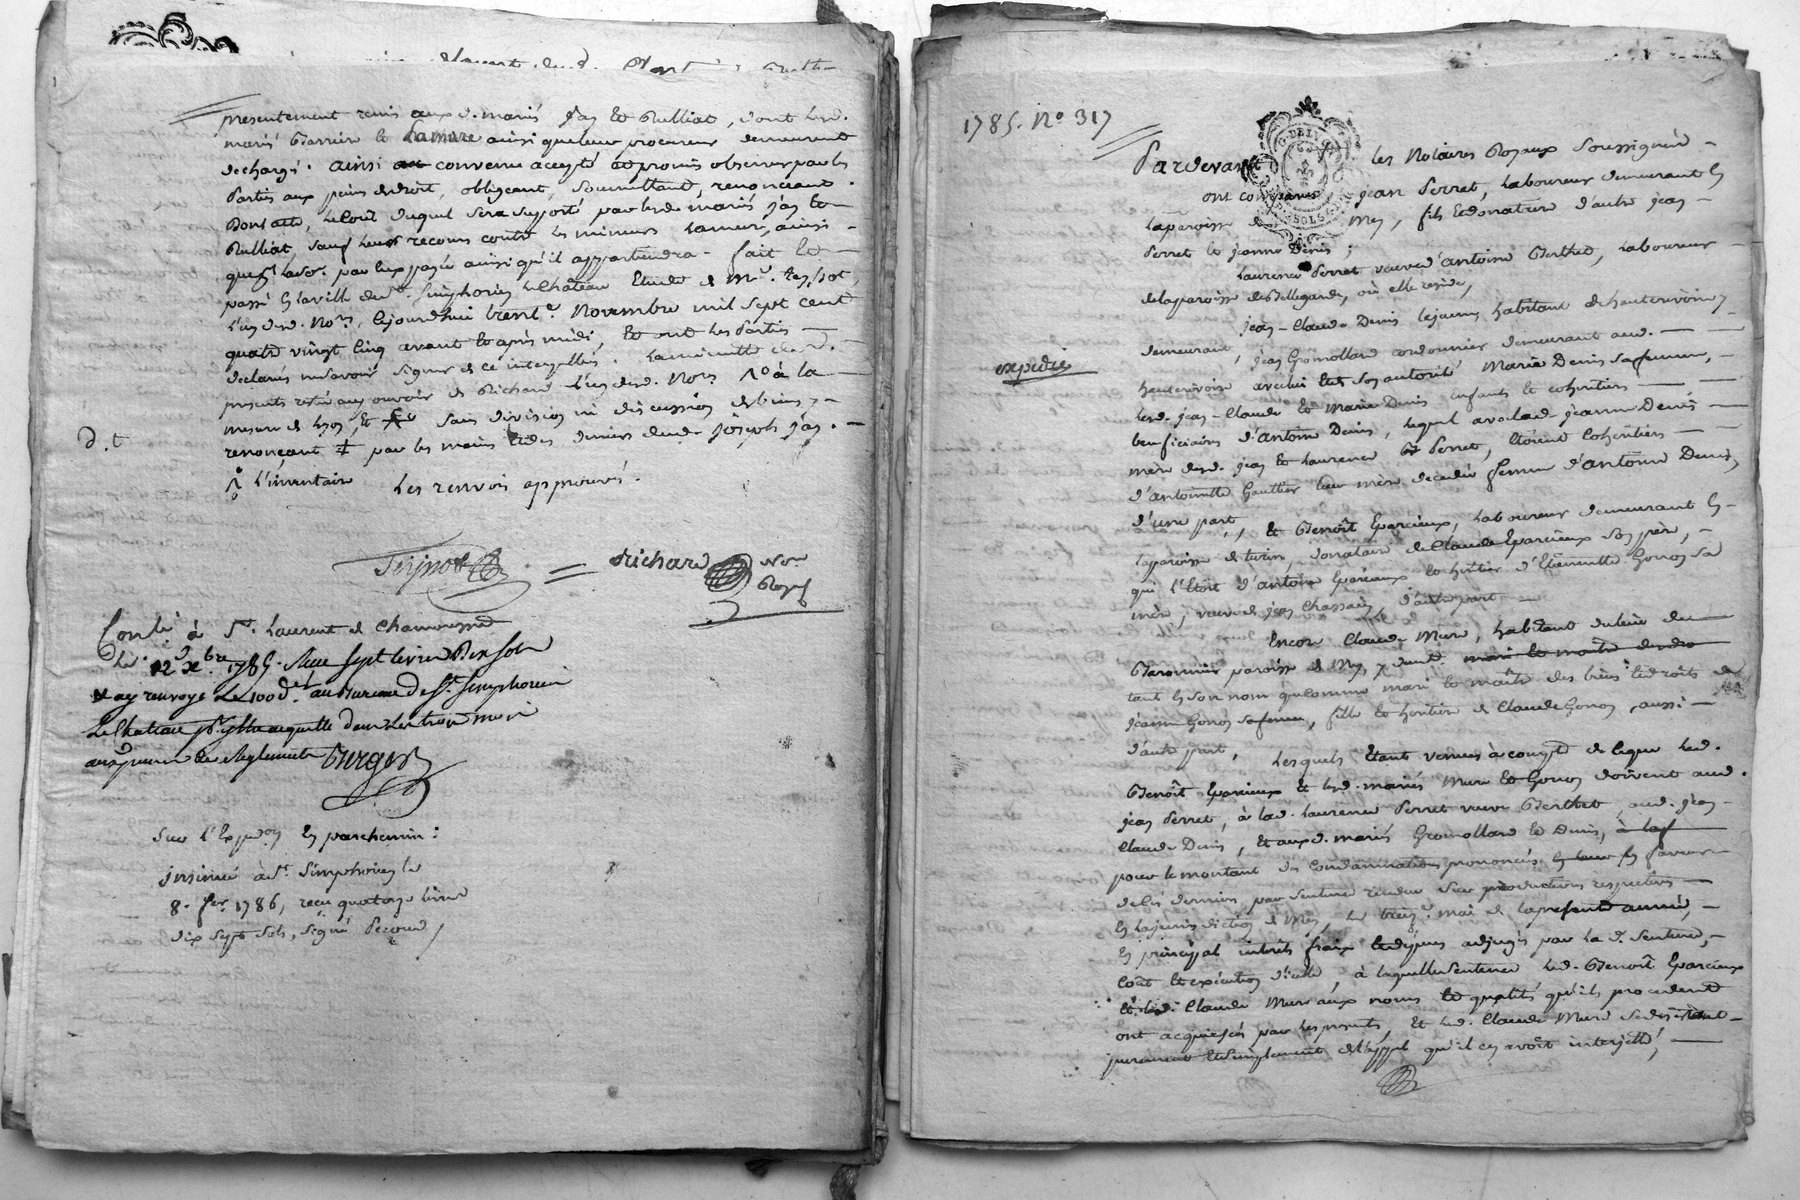 presentement remis aux d. mariés Jay et Rulliat, dont led.
mariés et lamure ainsi que leur procureur demeurent
dechargés. ainsi convenu accepté et promis observer par les
Parties aux peines de droit, obligeant, soumettant, renonceant.
Dont acte, le cout duquel sera supporté par lesd. mariés Jay et
Rulliat, sauf leur recours contre les mineurs, ainsi
par eux payé ainsi qu'il appartiendra. fait et
passé en la ville de St. Simphorien le Château Etude de Me. Teyssot,
l'un desd. Nores, cejourd'hui trente Novembre mil sept cent
quatre vingt cinq avant et après midi, et ont les Parties
declarés ne savoir signer de ce interpellés. La minutte
presents resté au pouvoir de Richard l'un desd. Nores
mesure de Lyon, et sans division ni discussion de biens,
renonçant par les mains et des deniers dud. Joseph Jay.
d. t
l'inventaire
Les renvois approuvés.
Richard Nore
Royal
Conlé à St. Laurent de Chamousset
le 12 Xbre 1785. Reçu sept livres Dix sols
ay renvoyé le 100d. au Bureau de St. Simphorien
Le Chateau pr. y être acquitté dans les trois mois
aux peines des Reglements
Sur l'Expedon en parchemin:
insinué à St. Simphorien le
8. fer. 1786, reçu quatorze livres
dix sept sols, signé Second,
1785. No 317
Pardevant les Notaires Royaux Soussignés
ont comparus Jean Perret, Laboureur demeurant en
la paroisse de Mey, fils et donataire d'autre Jean
Perret et Jeanne Denis;
Laurence Perret veuve d'antoine Berthet, Laboureur
de la paroisse de Bellegarde, où elle reside,
Jean-Claude Denis le jeune habitant de hauterivoire y
demeurant, Jean Gromollard cordonnier demeurant aud.
hauterivoire avec lui et de son autorité Marie Denis sa femme,
expediée
lesd. Jean-Claude et Marie Denis enfants et cohéritiers
beneficiaires d'antoine Denis, lequel avec lad. Jeanne Denis
mère desd. Jean et Laurence Perret, étoient Cohéritiers
d'antoinette Gaultier leur mère decedée femme d'antoine Denis,
d'une part, et Benoît Eparcieux, Laboureur demeurant en
la paroisse de turin, donataire de Claude Eparcieux son père,
qui l'étoit d'antoine Eparcieux cohéritier d'Etiennette Gonon sa
mère, veuve de Jean Chassain, d'autre part
Encore Claude Mure, habitant du lieu du
paroisse de Mey, y demt. mari et maître des dro
tant en son nom que comme mari et maître des biens et droits de
Jeanne Gonon sa femme, fille et héritière de Claude Gonon, aussi
d'autre part, Lesquels étant venus à compte de ce que led.
Benoît Eparcieux et lesd. mariés Mure et Gonon doivent aud.
Jean Perret, à lad. Laurence Perret veuve Berthet, aud. Jean
Claude Denis, et aux d. mariés Gromollard et Denis,
pour le montant des Condamnations prononcées en leur faveur
de les derniers, par sentence rendue sur productions respectives
en la jurisdiction de Mey, le treize mai de la presente année,
en principal interets fraix et depens adjugés par la d. sentence,
Cout et execution d'icelle, à laquelle sentence led. Benoît Eparcieux
et led. Claude Mure aux noms et qualités qu'ils procedent
ont acquiescés par les presents, et led. Claude Mure se desistant
purement et simplement de l'appel qu'il en avoit interjetté,